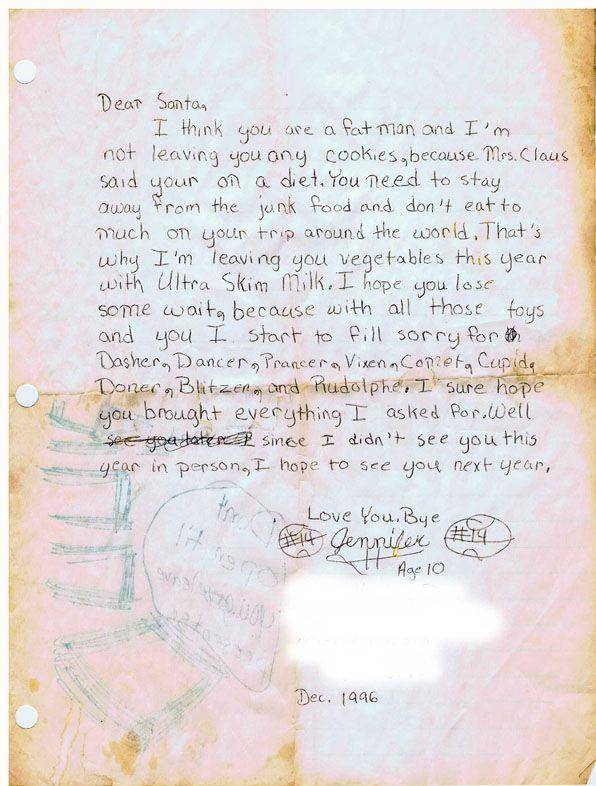 Dear Santa,
I think you are a fat man and I'm
not leaving you any cookies, because Mrs. Claus
said your on a diet. You need to stay
away from the junk food and don't eat to
much on your trip around the world. That's
why I'm leaving you vegetables this year
with Ultra Skim Milk. I hope you lose
some wait, because with all those toys
and you I start to fill sorry for
Dasher, Dancer, Prancer, Vixen, Comet, Cupid,
Doner, Blitzen, and Rudolphe. I sure hope
you brought everything I asked for. Well
see you later I since I didn't see you this
year in person, I hope to see you next year.
Love You, Bye
#14 Jennifer #14
Age 10
Don't
open til
Dec. 1996